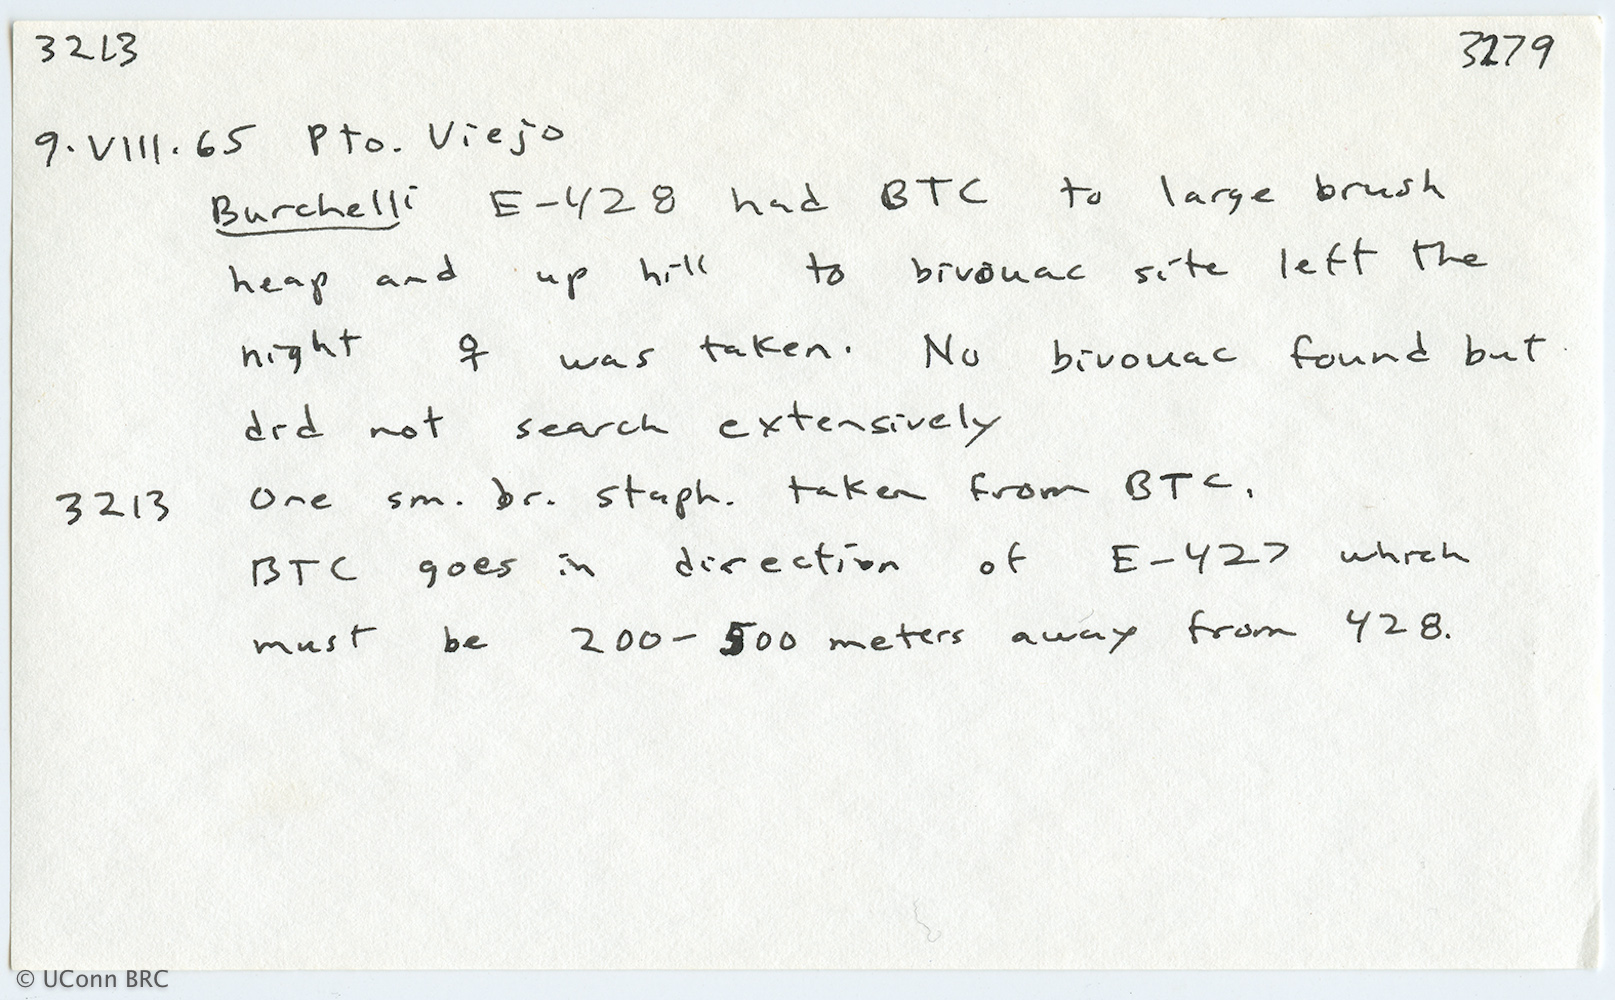 3213 3279
9.VIII.65 Pto. Viejo
Burchelli E-428 had BTC to large brush
heap and up hill to bivouac site left the
night ♀ was taken. No bivouac found but
did not search extensively
3213 One sm. br. staph. taken from BTC.
BTC goes in direction of E-427 which
must be 200-500 meters away from 428.
© UConn BRC